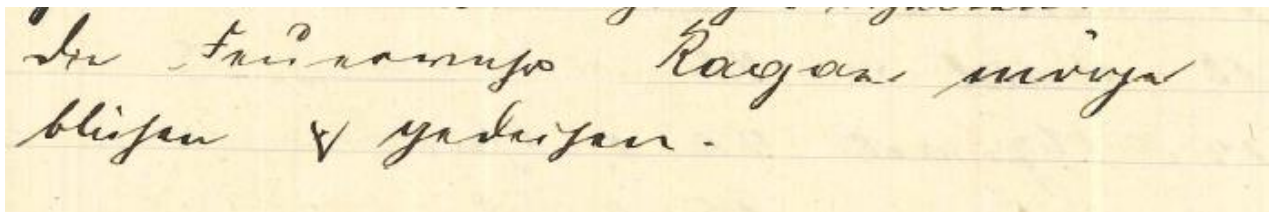 die Feuerwehr Ragaz möge
blühen & gedeihen.